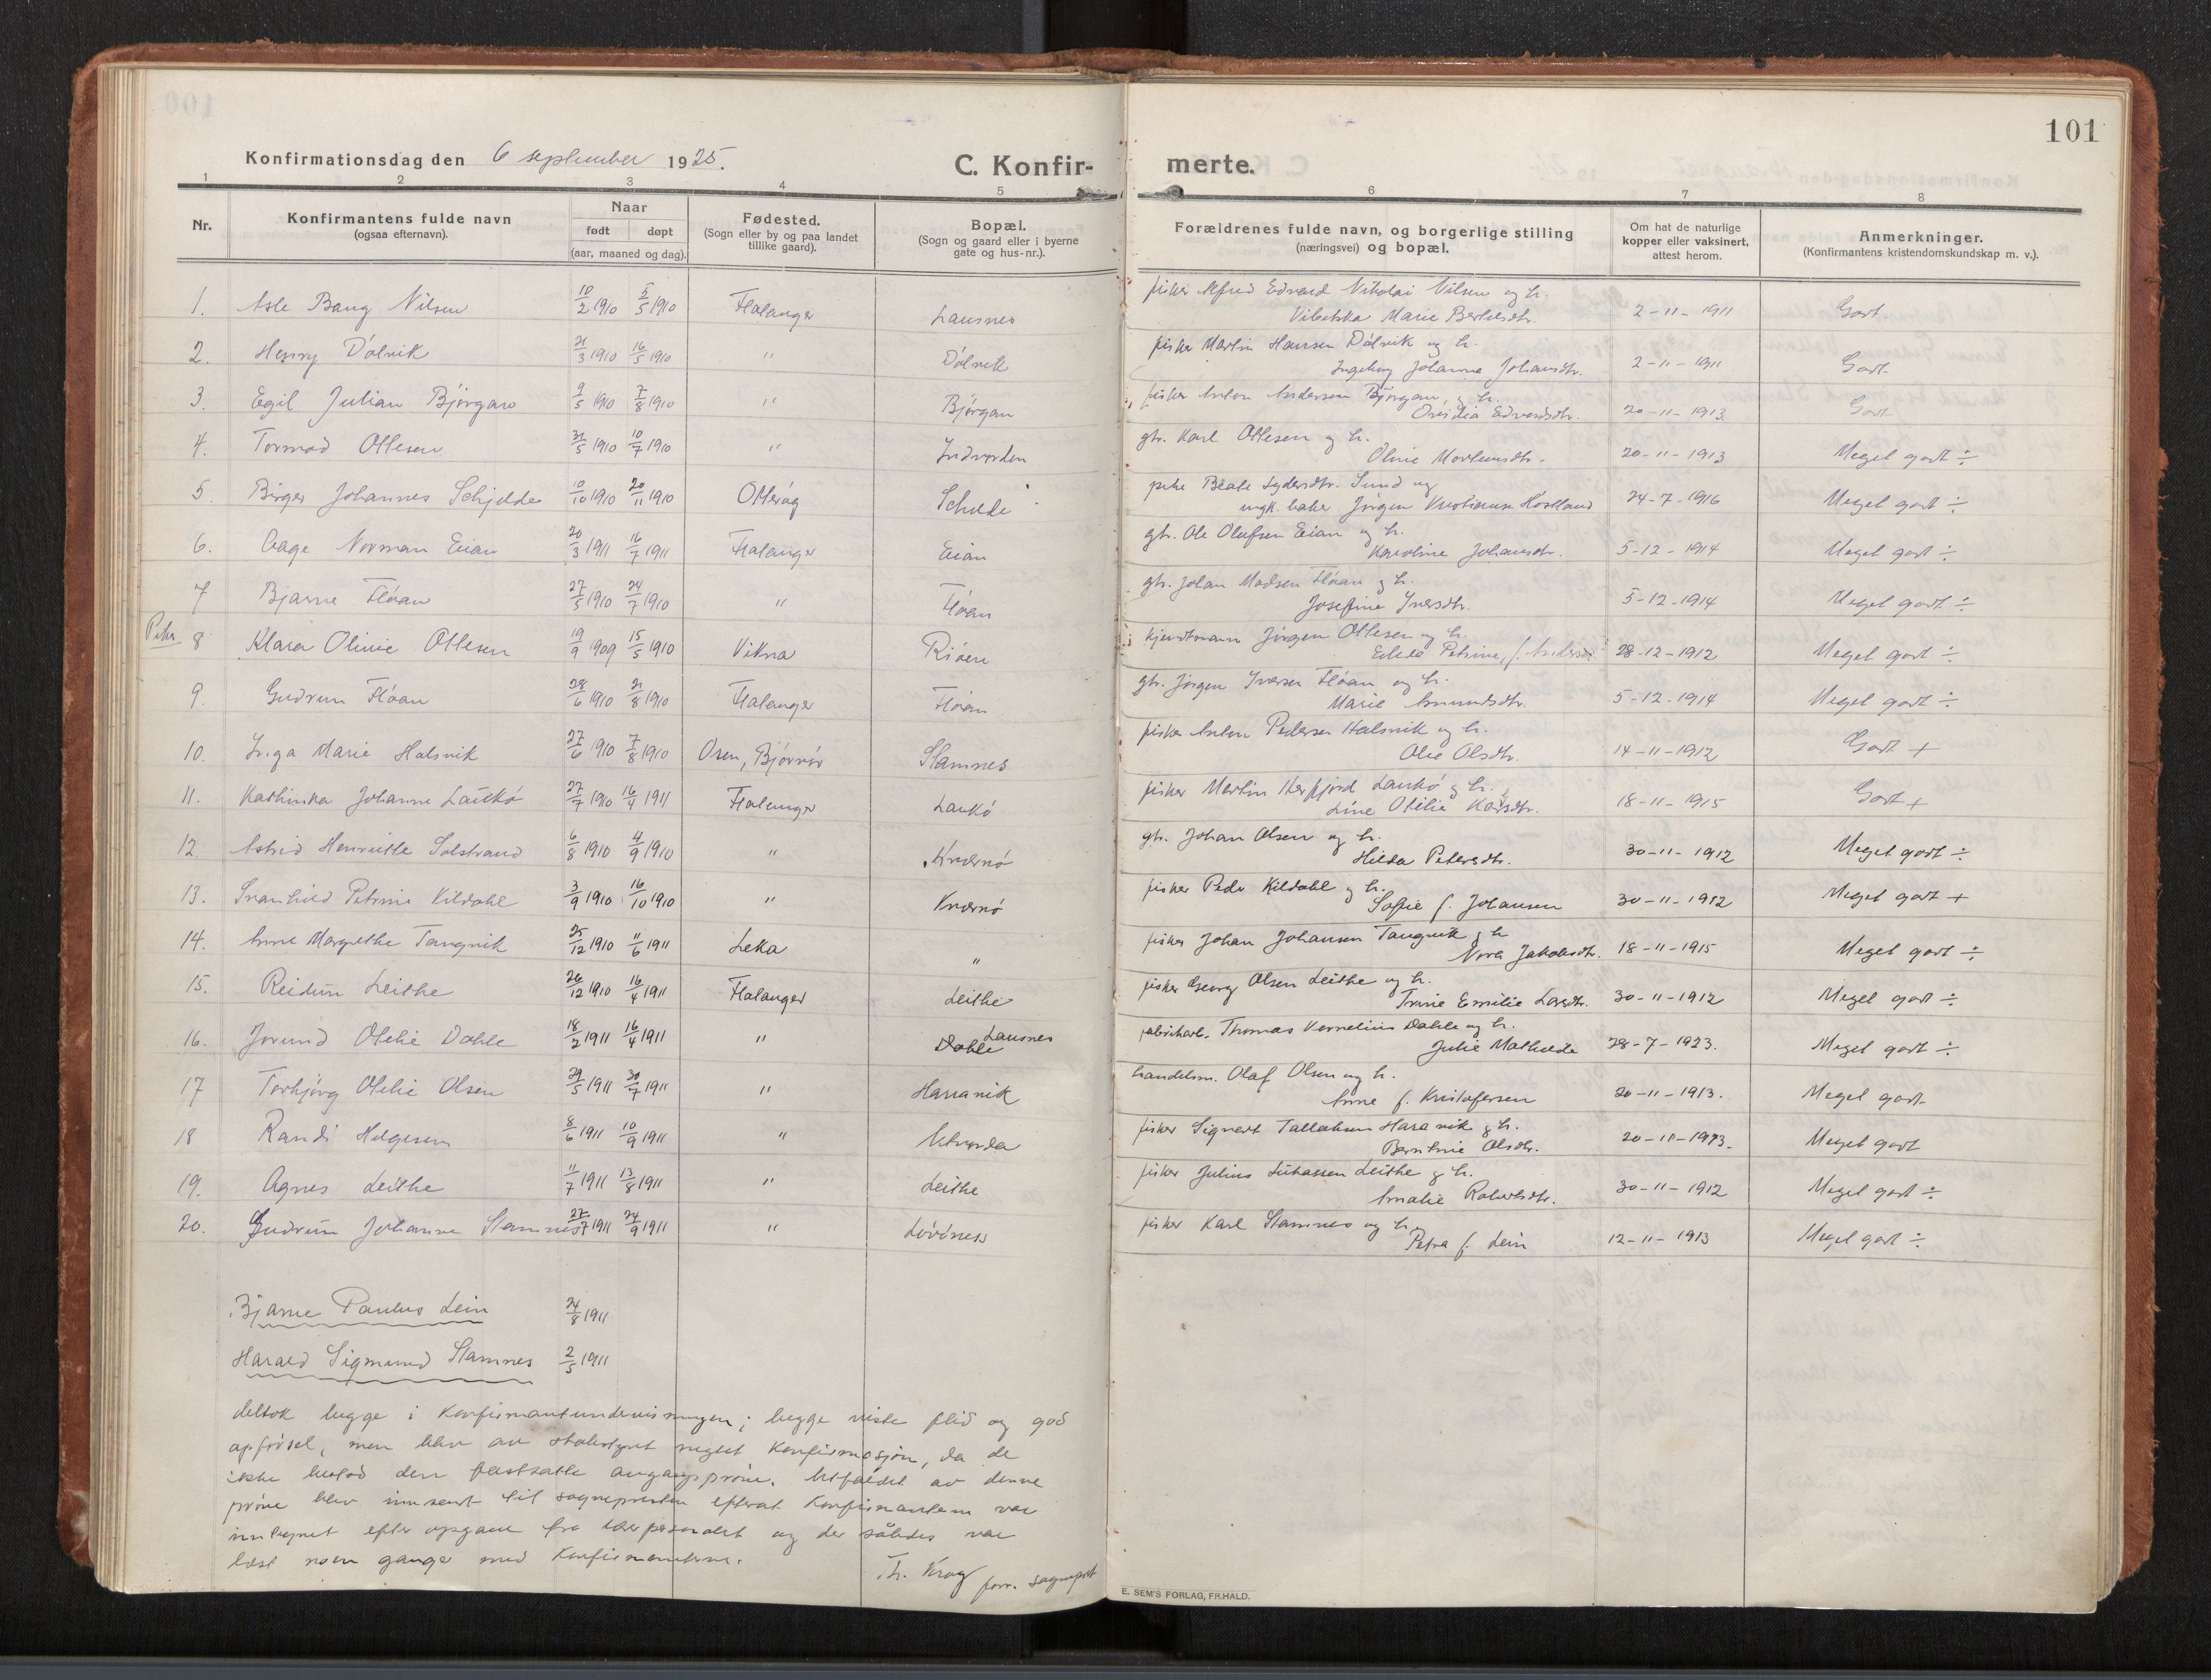 101
Konfirmationsdag den 6 september 1925.
C. Konfir-
merte.
1 2 3 4 5 6 7 8
Nr.
Konfirmantens fulde navn
(ogsaa efternavn).
Naar
født døpt
(aar, maaned og dag).
Fødested.
(Sogn eller by og paa landet
tillike gaard).
Bopæl.
(Sogn og gaard eller i byerne
gate og hus-nr.).
Forældrenes fulde navn, og borgerlige stilling
(næringsvei) og bopæl.
Om hat de naturlige
kopper eller vaksinert,
attest herom.
Anmerkninger.
(Konfirmantens kristendomskundskap m. v.).
1. Asle Bang Nilsen 10/2 1910 5/5 1910 Flatanger Lausnes fisker Alfred Edvard Nikolai Nilsen og h.
Marie 2-11-1911 Godt.
2. Henry Dølvik 21/3 1910 16/5 1910 " Dølvik fisker Martin Hansen Dølvik og h.
Ingeborg Johanna Johansdtr. 2-11-1911 Godt
3. Egil Julian Bjørgan 9/5 1910 7/8 1910 " Bjørgan fisker Anton Andersen Bjørgan, og h.
Ovidia Edvardsdtr. 20-11-1913 Godt
4. Tormod Ottesen 31/5 1910 10/7 1910 " Indvorden gbr. Karl Ottesen og h.
Oline 20-11-1913 Meget godt ÷
5. Birger Johannes Schjelde 10/10 1910 20/11 1910 Otterøy pike Beate Sund og
ungk. baker Jørgen 24-7-1916 Meget godt ÷
6. Aage Norman Eian 20/3 1911 16/7 1911 Flatanger Eian gbr. Ole Olufsen Eian og h.
Karoline Johansdtr. 5-12-1914 Meget godt ÷
7 Bjarne Fløan 27/5 1910 24/7 1910 " Fløan gbr. Johan Madsen Fløan og h.
Josefine Iversdtr. 5-12-1914 Meget godt ÷
Piker
8 Klara Olinie Ottesen 19/9 1909 15/5 1910 Vikna Riøen Jørgen Ottesen og h.
Petrine, f. 28-12-1912 Meget godt ÷
9. Gudrun Fløan 28/6 1910 21/8 1910 Flatanger Fløan gbr. Jørgen Iversen Fløan og h.
Marie Amundsdtr. 5-12-1914 Meget godt ÷
10. Inga Marie Halsvik 27/6 1910 7/8 1910 Osen, Bjørnør Stamnes fisker Anton Pedersen Halsvik og h.
Olie Olsdtr. 14-11-1912 Godt +
11. Kathinka Johanne Laukø 27/7 1910 16/4 1911 Flatanger Laukø fisker Martin Herfjord Laukø og h.
Line Otilie Karsdtr. 18-11-1915 Godt +
12 Astrid Henriette Solstrand 6/8 1910 4/9 1910 " Kvernø gbr. Johan Olsen og h.
Hilda Petersdtr. 30-11-1912 Meget godt ÷
13. Svanhild Petrine Kildahl 3/9 1910 16/10 1910 " Kvernø fisker Peder Kildahl og h.
Sofie f. Johansen 30-11-1912 Meget godt +
14. Anne Margrethe Tangvik 25/12 1910 11/6 1911 Leka " fisker Johan Johansen Tangvik og h
Nora Jakobsdtr. 18-11-1915 Meget godt ÷
15. Reidun Leithe 26/12 1910 16/4 1911 Flatanger Leithe fisker Georg Olsen Leithe og h.
Trine Emilie Larsdtr. 30-11-1912 Meget godt ÷
16. Jorund Otelie Dahle 18/2 1911 16/4 1911 " Lausnes
Dahle fabrikarb. Thomas Kornelius Dahle og h.
Julie Mathilde 28-7-1923. Meget godt ÷
17 Torbjørg Otelie Olsen 29/5 1911 30/7 1911 " Harranvik handelsm. Olaf Olsen og h.
Anne f. Kristofersen 20-11-1913. Meget godt
18 Randi Helgesen 8/6 1911 10/9 1911 " Utvorda fisker Haravik og h.
Berntine Olsdtr. 20-11-1913. Meget godt
19. Agnes Leithe 11/7 1911 13/8 1911 " Leithe fisker Julius Leithe og h.
Amalie Robertsdtr. 30-11-1912 Meget godt ÷
20. Gudrun Johanne Stamnes 27/7 1911 24/9 1911 " Løvøness fisker Karl Stamnes og h.
Petra f. Lein 12-11-1913 Meget godt ÷
Bjarne Paulus Lein 24/8 1911
Harald Sigmund Stamnes 2/5 1911
deltok begge i konfirmantundervisningen; begge viste flid og god
opførsel, men blev av skolestyret negtet konfirmasjon, da de
ikke bestod den fastsatte avgangsprøve. Utfaldet av denne
prøve blev innsendt til sogneprosten efterat konfirmantene var
inntegnet efter opgave fra lærerpersonalet og der således var
læst noen gange med konfirmantene.
Th. Krag
forr. sogneprest
E. SEM'S FORLAG, FR.HALD.